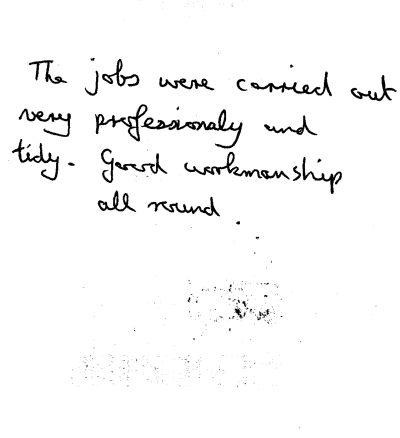 The jobs were carried out
very professionaly and
tidy. Good workmanship
all round.